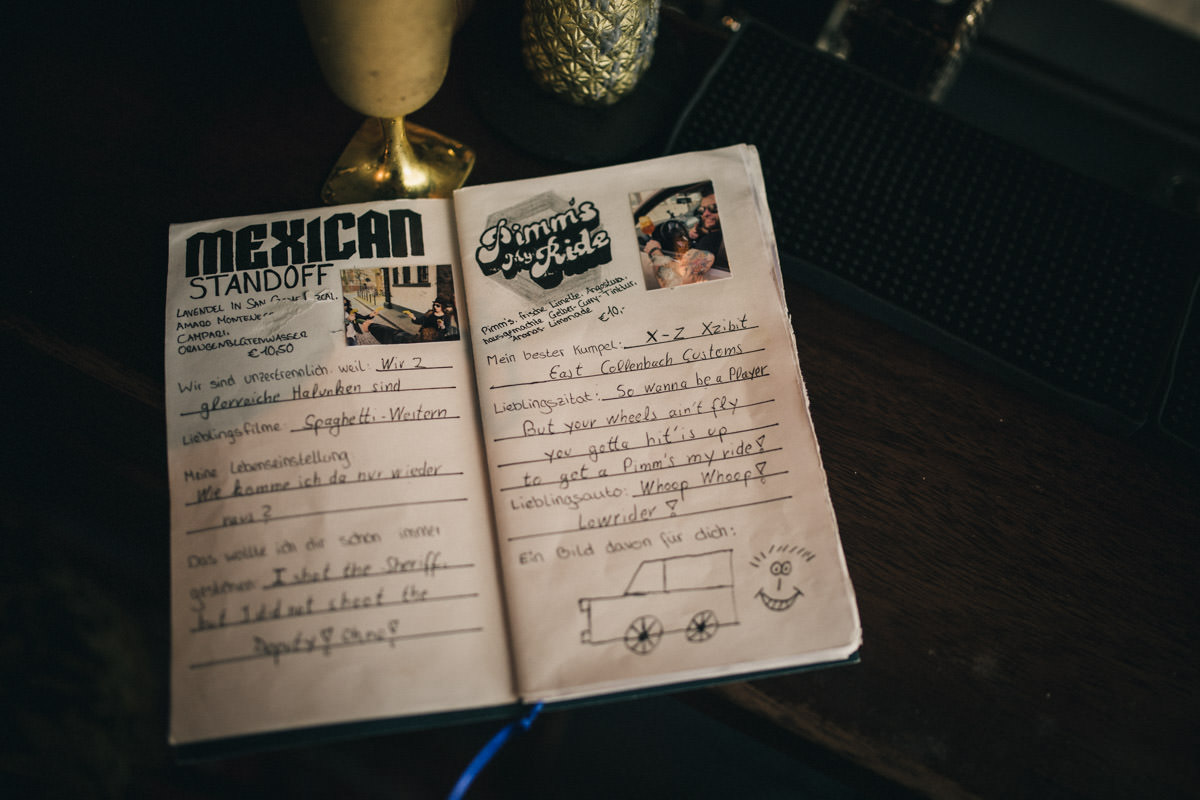 MEXICAN
STANDOFF
LAVENDEL IN SAN
AMARO
CAMPARI,
ORANGENBLÜTENWASSER
€ 10,50
Wir sind unzertrennlich, weil: Wir 2
glorreiche Halunken sind
Lieblingsfilme: Spaghetti-Western
Meine Lebenseinstellung:
Wie komme ich da nur wieder
raus?
Das wollte ich dir schon immer
gestehen: I shot the Sheriff,
but I did not shoot the
Deputy! Ohne!
Pimm's
My Ride
Pimm's, frische Limette, Angostura,
hausgemachte Gelbe-Curry-Tinktur,
Ananas-Limonade €10,-
Mein bester Kumpel: X-Z Xzibit
East Collenbach Customs
Lieblingszitat: So wanna be a Player
But your wheels ain't fly
you gotta hit'is up
to get a Pimm's my ride!
Lieblingsauto: Whoop Whoop!
Lowrider!
Ein Bild davon für dich: